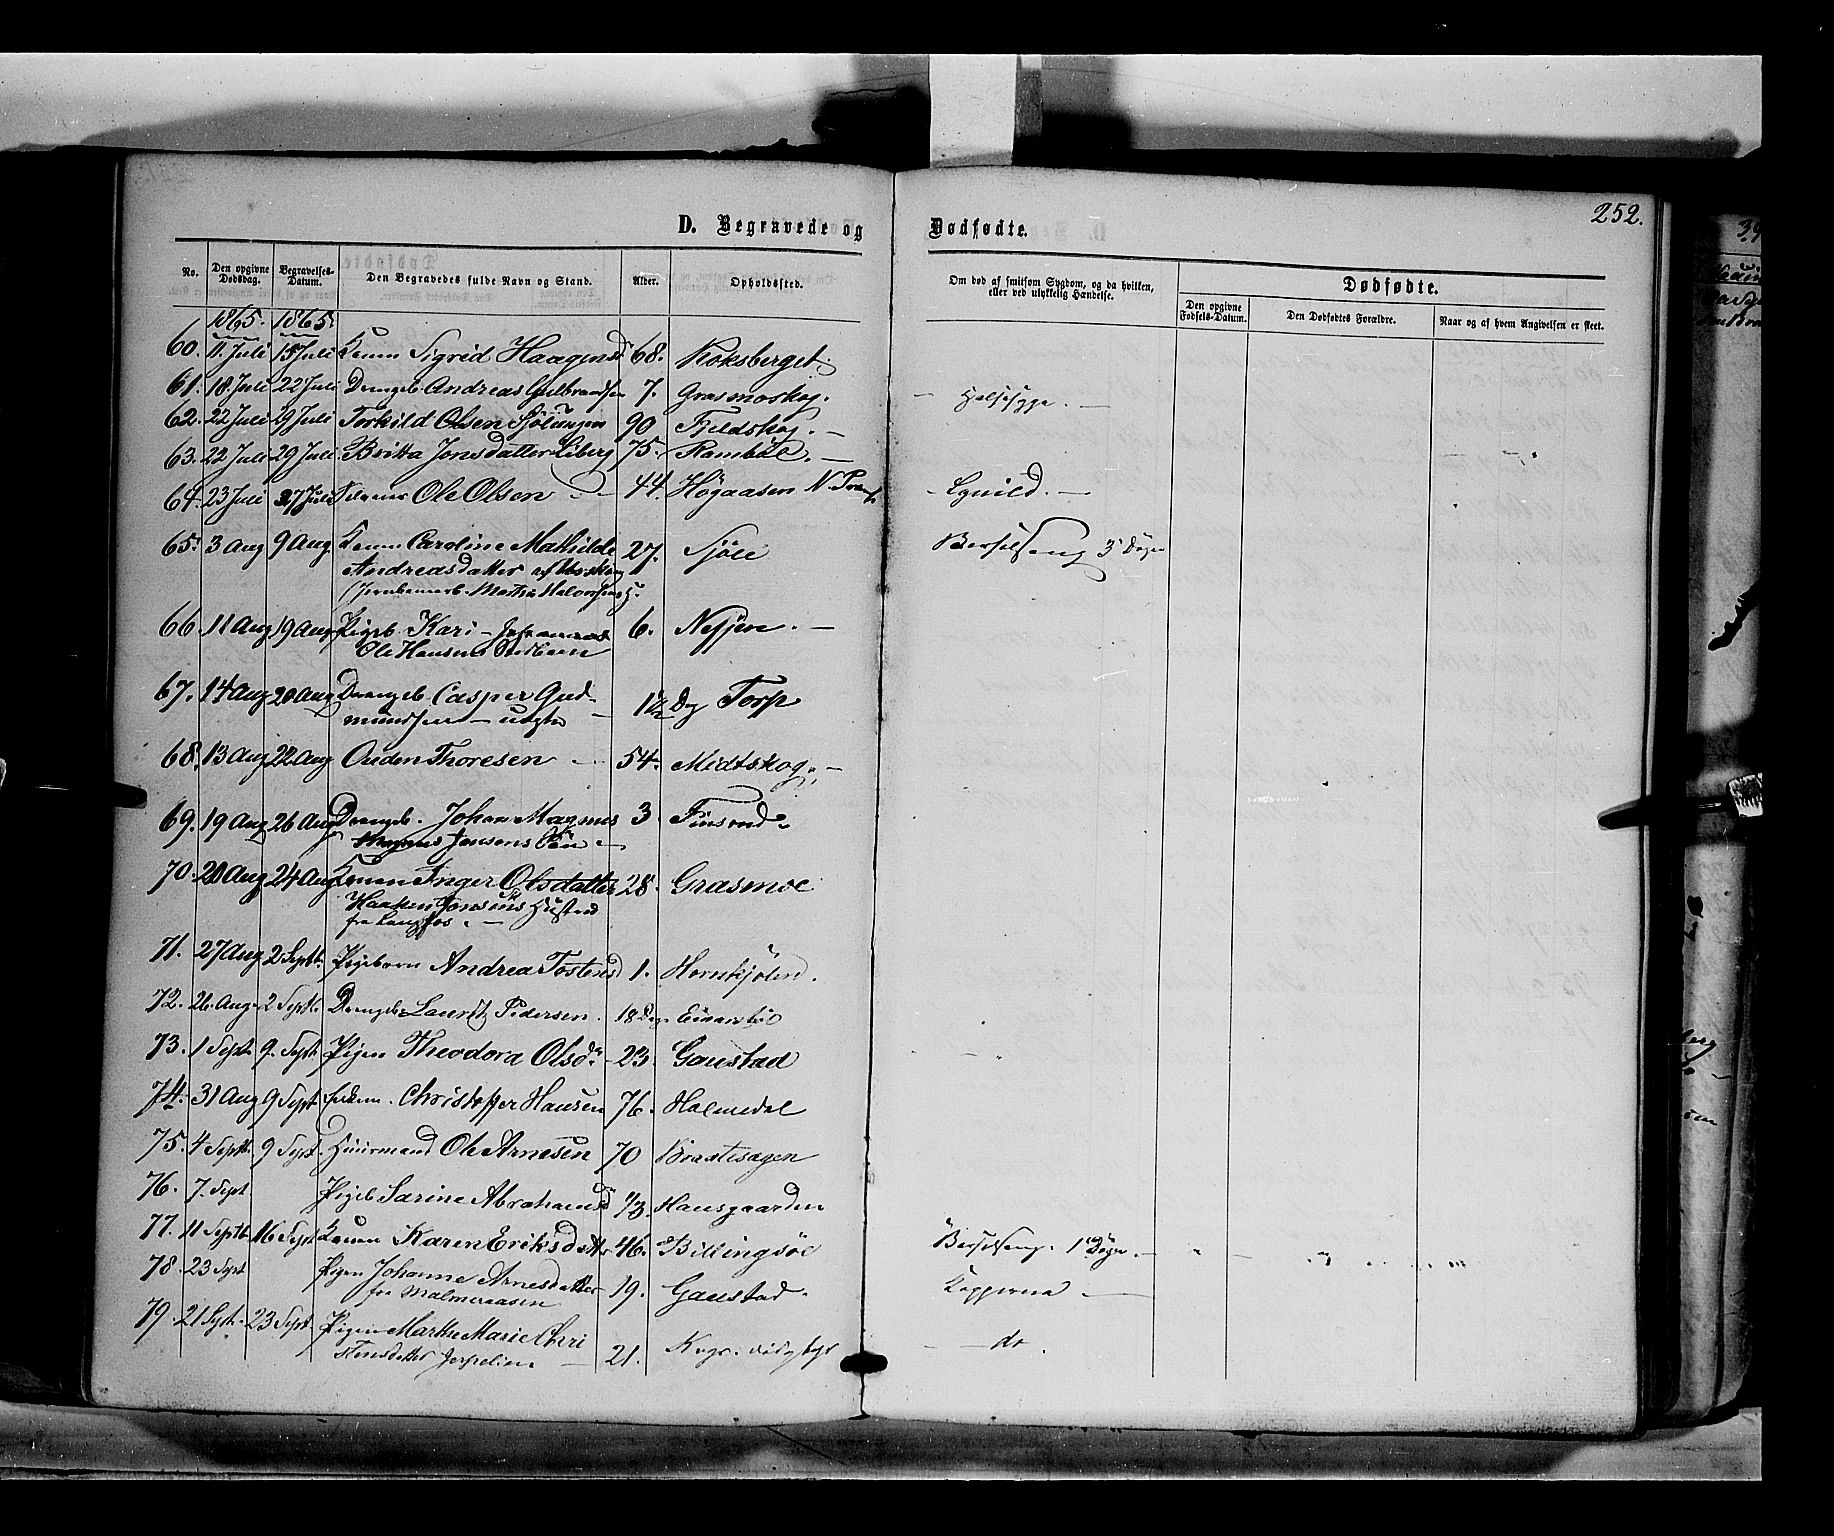 252.
D. Begravede og Dødfødte.
No. Den opgivne Dødsdag. Begravelses-Datum. Den Begravedes fulde Navn og Stand. Alder. Opholdssted. Om død af smitsom Sygdom, og da hvilken, eller ved ulykkelig Hændelse. Dødfødte.
Den opgivne Fødsels-Datum. Den Dødfødtes Forældre. Naar og af hvem Angivelsen er skeet.
1865. 1865.
60. 11. Juli 15 Juli Konen Sigrid Haagensd 68. Koksberget.
61. 18. Juli 22 Juli Drengeb. Andreas Gulbrandsen 7. Grasmoskog. Halssyge. —
62. 22 Juli 29 Juli Torkild Olsen 90 Fjeldskog. —
63. 22 Juli 29 Juli Britta Jonsdatter Liberg 75. Rambøl. —
64. 23 Juli 27 Juli Ole Olsen — 44. Høgaasen N.
65. 3 Aug 9 Aug. Konen Caroline Mathilde 27. Sjöli Barselseng 3 Døgn
Andreasdatter af
66. 11 Aug 19 Aug Pigeb. Kari — 6. Nesjen. —
Ole Hansens
67. 14 Aug 20 Aug Drengeb. Casper Gud- 1½ Dg Torp
mundsen — uægte —
68. 13 Aug 22 Aug Ouden Thoresen — 54. Midtskog. —
69. 19 Aug 26 Aug Drengeb. Johan Magnus 3 Finsrud.
Magnus Jensens Søn —
70. 20 Aug 24 Aug Konen Inger Olsdatter 28. Grasmoe
Haaken Jonsens Hustrud
fra Langfos. —
71. 27 Aug 2 Septb. Pigebarn Andrea Tostensd 1. Hornkjølen.
72. 26. Aug. 2 Septb. Drengeb. Lauritz Pedersen. 18 Dage
73. 1 Sept 9. Sept Pigen Theodora Olsd. 23. Gaustad
74. 31 Aug 9 Sept Christoffer Hansen 76. Holmedal
75. 4 Septb. 9 Sept. Huusmand Ole Arnesen 70 Braatesagen
76. 7. Sept Pigeb Sarine Abrahamsd Hansgaarden
77. 11 Septb. 16 Sept Konen Karen Eriksdatter 46. Billingsøl Barselseng. 1 Døgn. —
78. 23 Sept Pigen Johanne Arnesdatter 19. Gaustad. Kopperne —
fra Malmeraasen
79. 21 Sept. 23 Sept. Pigen Marthe Marie Chri 21. — do.
stensdatter